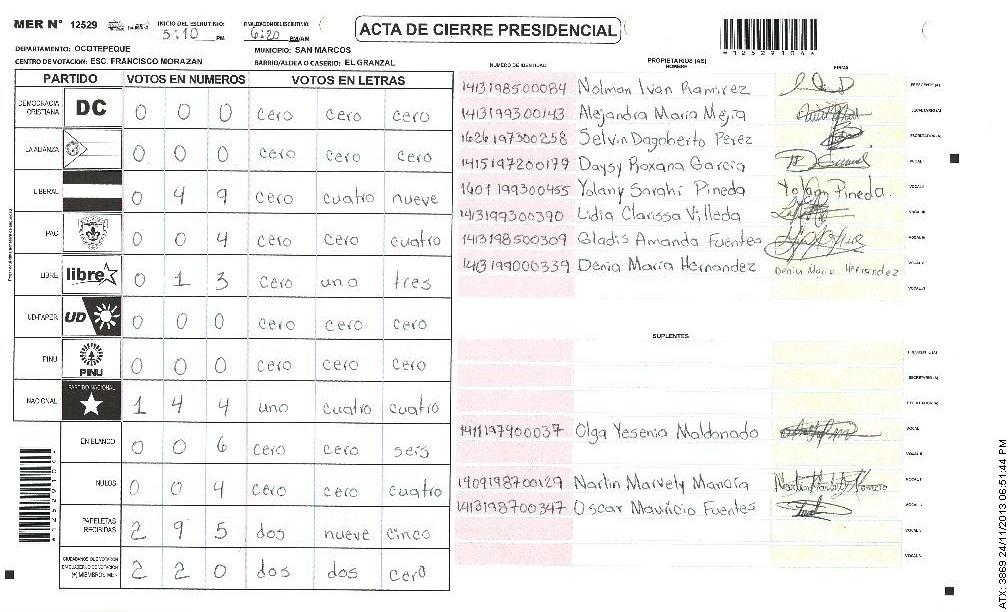 MER N° 12529 INICIO DEL ESCRUTINIO: 5:10 PM FINALIZACION ESCRUTINIO: 6:20 PM/AM
ACTA DE CIERRE PRESIDENCIAL
*125291041*
DEPARTAMENTO: OCOTEPEQUE MUNICIPIO: SAN MARCOS
CENTRO DE VOTACION: ESC. FRANCISCO MORAZAN BARRIO/ALDEA O CASERIO: EL GRANZAL
PARTIDO VOTOS EN NUMEROS VOTOS EN LETRAS
DEMOCRACIA CRISTIANA DC 0 0 0 cero cero cero
LA ALIANZA 0 0 0 cero cero cero
LIBERAL 0 4 9 cero cuatro nueve
PAC 0 0 4 cero cero cuatro
LIBRE libre 0 1 3 cero uno tres
UD-FAPER UD 0 0 0 cero cero cero
PINU PINU 0 0 0 cero cero cero
NACIONAL PARTIDO NACIONAL 1 4 4 uno cuatro cuatro
EN BLANCO 0 0 6 cero cero seis
NULOS 0 0 4 cero cero cuatro
PAPELETAS RECIBIDAS 2 9 5 dos nueve cinco
CIUDADANOS QUE VOTARON EN CUADERNO DE VOTACION (+) MIEMBROS MER 2 2 0 dos dos cero
NUMERO DE IDENTIDAD PROPIETARIOS (AS) NOMBRE FIRMA
1413198500084 Nolman Ivan Ramirez PRESIDENTE (A)
1413199300143 Alejandra Maria Mejia SECRETARIO (A)
1626197300258 Selvin Dagoberto Perez ESCRUTADOR (A)
1415197200179 Daysy Roxana Garcia VOCAL I
1601199300455 Yolany Sarahi Pineda Yolany Pineda. VOCAL II
1413199300390 Lidia Clarissa Villeda VOCAL III
1413198500309 Gladis Amanda Fuentes VOCAL IV
1413199000339 Denia Maria Hernandez Denia Maria Hernandez VOCAL V
VOCAL VI
SUPLENTES
PRESIDENTE (A)
SECRETARIO (A)
ESCRUTADOR (A)
1411197400037 Olga Yesenia Maldonado VOCAL I
VOCAL II
1409198700129 Nartin Marvely Mancia VOCAL III
1413198700347 Oscar Mauricio Fuentes VOCAL IV
VOCAL V
VOCAL VI
ATX: 3869 24/11/2013 06:51:44 PM